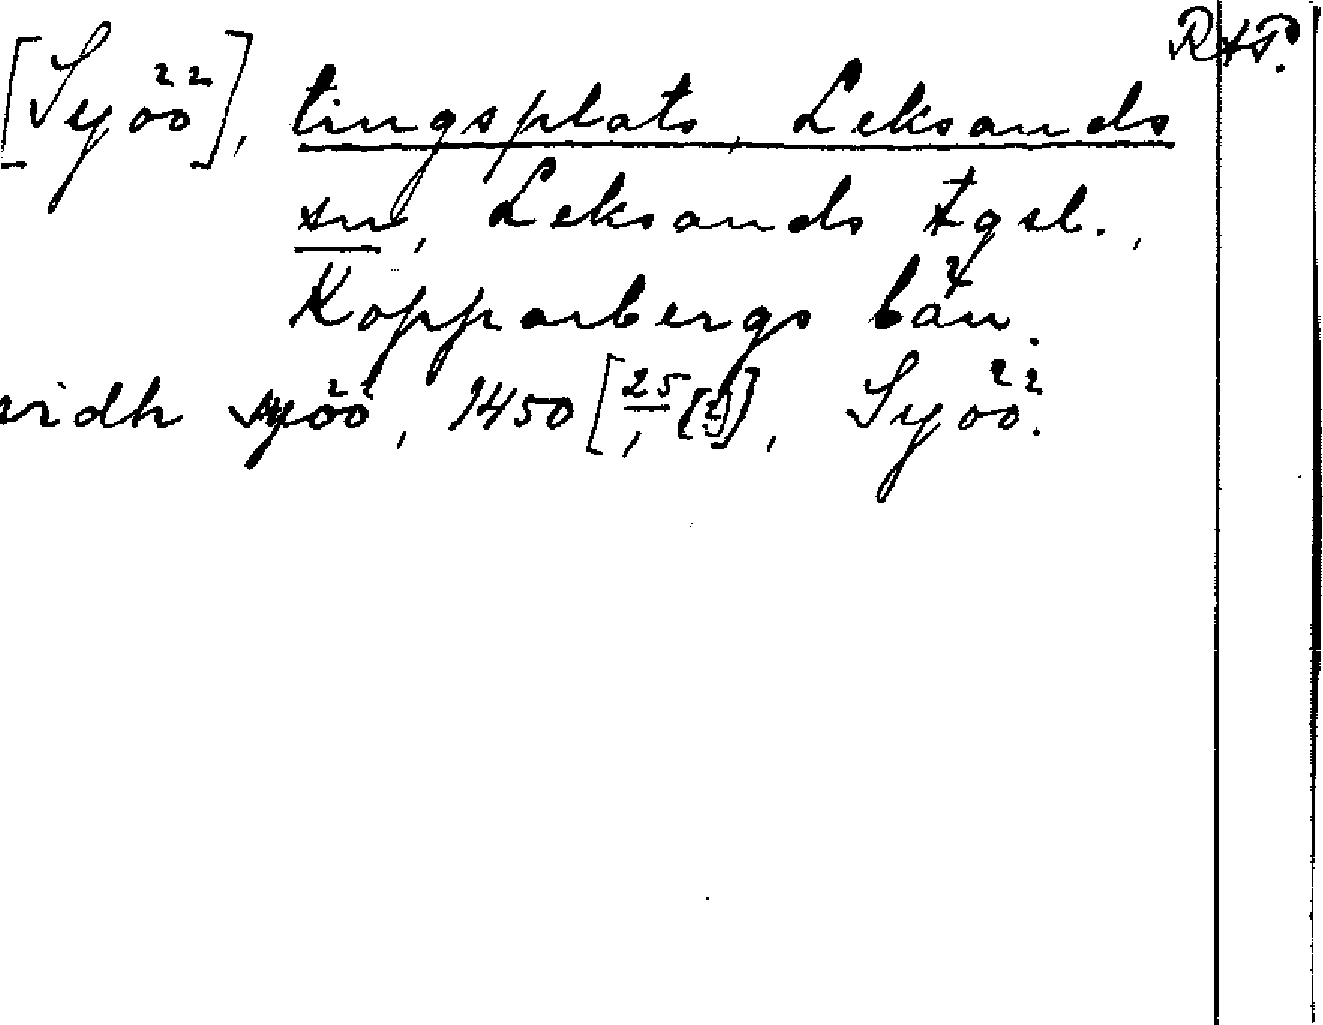 RAP.
[Syöö], tingsplats, Leksands
sn, Leksands tgsl.,
Kopparbergs län.
vidh syöö, 1450 [25/, (?)], Syöö.